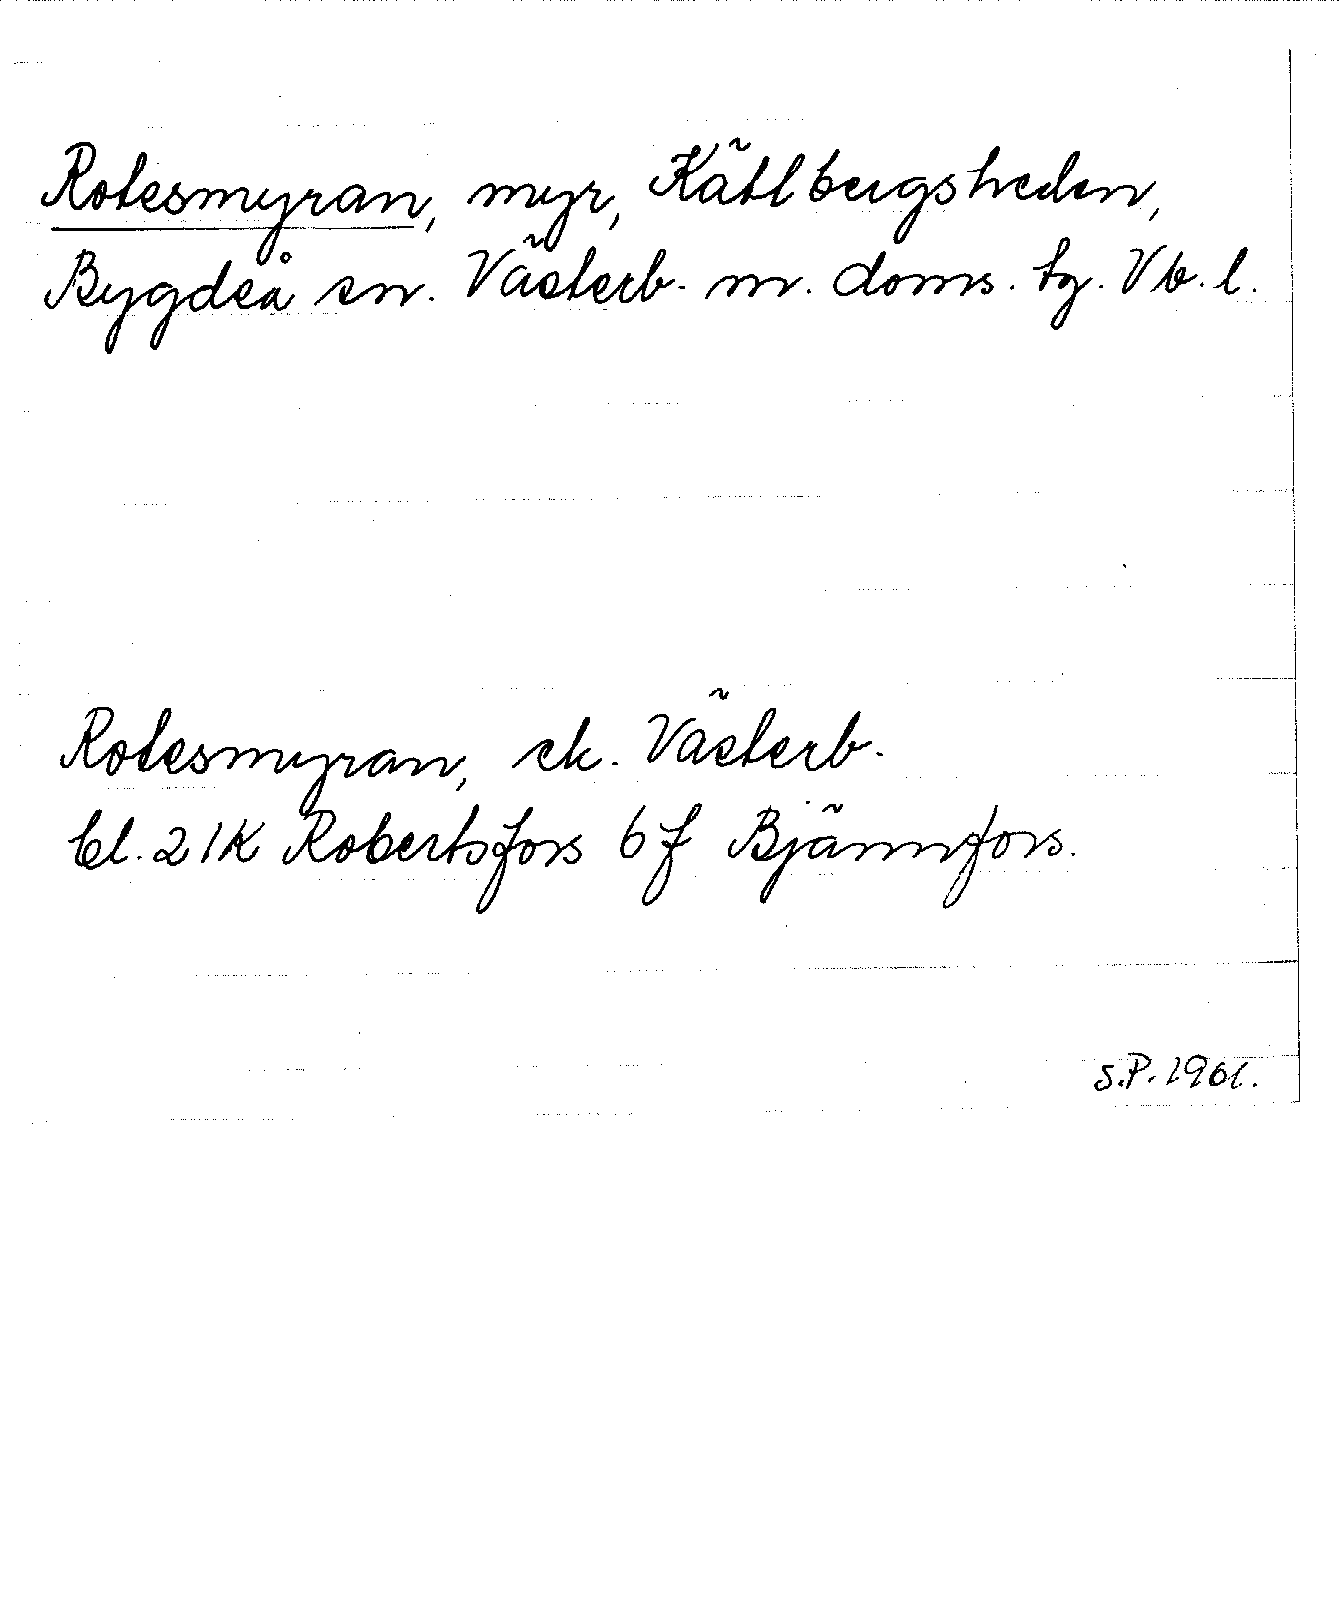 Rotesmyran, myr, Kätlbergsheden,
Bygdeå sn. Västerb. n. doms. tg. Vb. l.
Rotesmyran, ek. Västerb.
bl. 21K Robertsfors 6f Bjännfors.
S.P. 1961.